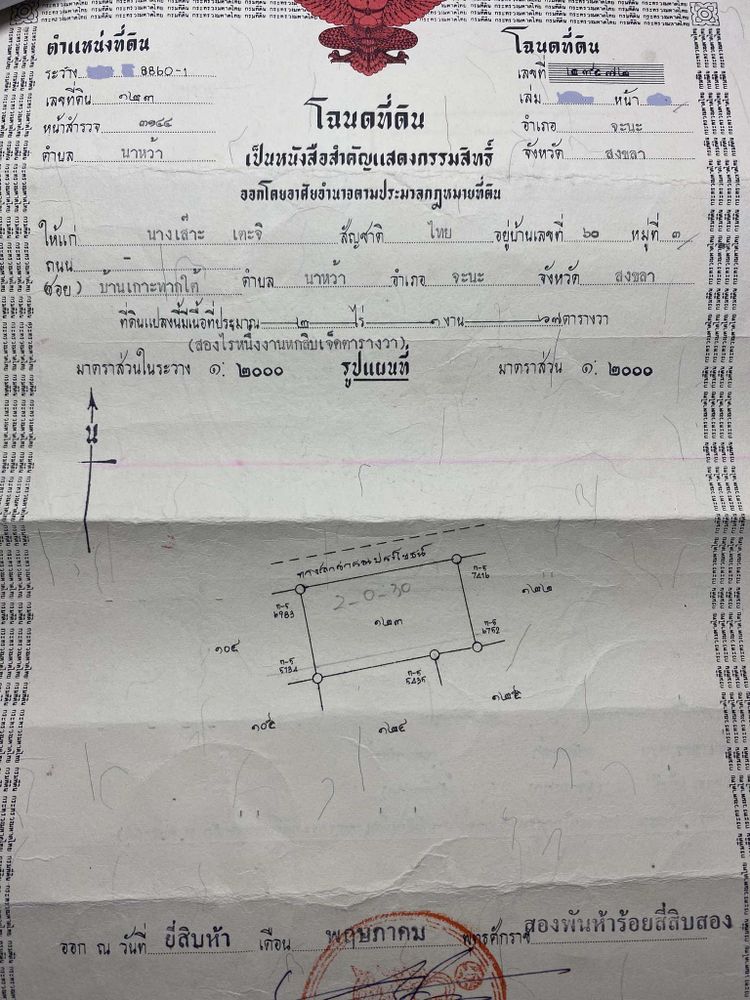 ตำแหน่งที่ดิน
ระวาง 8860-1
เลขที่ดิน ๑๒๓
หน้าสำรวจ ๓๑๔๔
ตำบล นาหว้า
โฉนดที่ดิน
เลขที่ ๒๙๕๗๒
เล่ม หน้า
อำเภอ จะนะ
จังหวัด สงขลา
โฉนดที่ดิน
เป็นหนังสือสำคัญแสดงกรรมสิทธิ์
ออกโดยอาศัยอำนาจตามประมวลกฎหมายที่ดิน
ให้แก่ นางเส๊าะ เตะจิ สัญชาติ ไทย อยู่บ้านเลขที่ ๖๐ หมู่ที่ ๓
ถนน
(ซอย) บ้านเกาะทากใต้ ตำบล นาหว้า อำเภอ จะนะ จังหวัด สงขลา
ที่ดินแปลงนี้มีเนื้อที่ประมาณ ๒ ไร่ ๑ งาน ๖๗ ตารางวา
(สองไร่หนึ่งงานหกสิบเจ็ดตารางวา)
มาตราส่วนในระวาง ๑: ๒๐๐๐ รูปแผนที่ มาตราส่วน ๑: ๒๐๐๐
น
ทางสาธารณประโยชน์
2-0-30
๑๒๓
ก-5
7416
๑๒๒
ก-5
๖983
ก-5
๖752
๑๐๕
ก-5
5134
ก-5
5435
๑๒๕
๑๐๕
๑๒๔
ออก ณ วันที่ ยี่สิบห้า เดือน พฤษภาคม พุทธศักราช สองพันห้าร้อยสี่สิบสอง